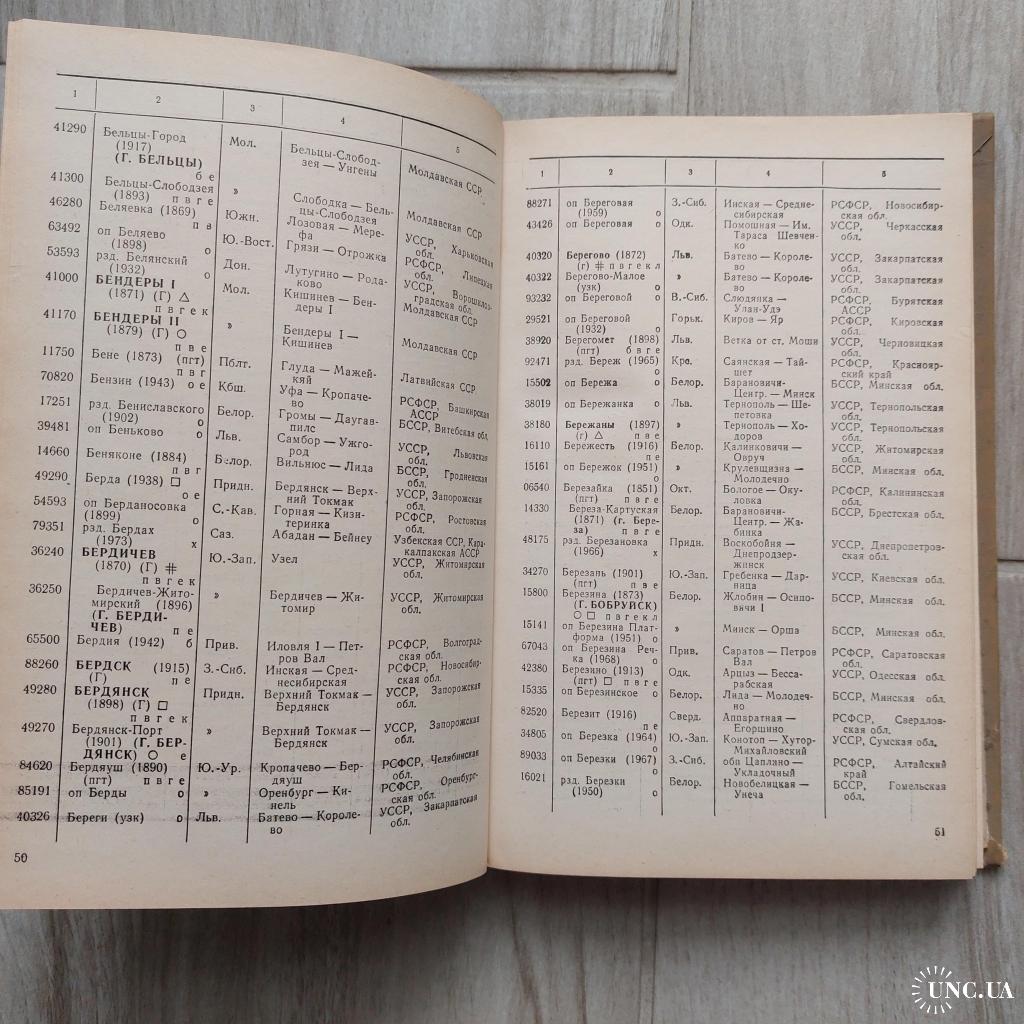 1 2 3 4 5
41290 Бельцы-Город Мол. Бельцы-Слобод- Молдавская ССР
(1917) зея — Унгены
(Г. БЕЛЬЦЫ)
б е
41300 Бельцы-Слободзея » Слободка — Бель- Молдавская ССР
(1893) п в г е цы-Слободзея
46280 Беляевка (1869) Южн. Лозовая — Мере- УССР, Харьковская
п в фа обл.
63492 оп Беляево Ю.-Вост. Грязи — Отрожка РСФСР, Липецкая
(1898) о обл.
53593 рзд. Белянский Дон. Лутугино — Рода- УССР, Ворошилов-
(1932) о ково градская обл.
41000 БЕНДЕРЫ I Мол. Кишинев — Бен- Молдавская ССР
(1871) (Г) △ деры I
п в г е к
41170 БЕНДЕРЫ II » Бендеры I — Молдавская ССР
(1879) (Г) ○ Кишинев
п в е
11750 Бене (1873) (пгт) Пблт. Глуда — Мажей- Латвийская ССР
п в г кяй
70820 Бензин (1943) о е Кбш. Уфа — Кропаче- РСФСР, Башкирская
во АССР
17251 рзд. Бениславского Белор. Громы — Даугав- БССР, Витебская обл.
(1902) о пилс
39481 оп Беньково о Льв. Самбор — Ужго- УССР, Львовская
род обл.
14660 Беняконе (1884) Белор. Вильнюс — Лида БССР, Гродненская
п в г обл.
49290 Берда (1938) □ Придн. Бердянск — Верх- УССР, Запорожская
о е ний Токмак обл.
54593 оп Берданосовка С.-Кав. Горная — Кизи- РСФСР, Ростовская
(1899) о теринка обл.
79351 рзд. Бердах Саз. Абадан — Бейнеу Узбекская ССР, Кара-
(1973) х калпакская АССР
36240 БЕРДИЧЕВ Ю.-Зап. Узел УССР, Житомирская
(1870) (Г) ⌗ обл.
п в г е к
36250 Бердичев-Жито- » Бердичев — Жи- УССР, Житомирская
мирский (1896) томир обл.
(Г. БЕРДИ-
ЧЕВ) п е
65500 Бердия (1942) б Прив. Иловля I — Пет- РСФСР, Волгоград-
ров Вал ская обл.
88260 БЕРДСК (1915) З.-Сиб. Инская — Сред- РСФСР, Новосибир-
(Г) п е несибирская ская обл.
49280 БЕРДЯНСК Придн. Верхний Токмак — УССР, Запорожская
(1898) (Г) □ Бердянск обл.
п в г е к
49270 Бердянск-Порт » Верхний Токмак — УССР, Запорожская
(1901) (Г. БЕР- Бердянск обл.
ДЯНСК) ○ е
84620 Бердяуш (1890) Ю.-Ур. Кропачево — Бер- РСФСР, Челябинская
(пгт) п в г е дяуш обл.
85191 оп Берды о » Оренбург — Ки- РСФСР, Оренбург-
нель ская обл.
40326 Береги (узк) о Льв. Батево — Короле- УССР, Закарпатская
во обл.
50
1 2 3 4 5
88271 оп Береговая З.-Сиб. Инская — Средне- РСФСР, Новосибир-
(1959) о сибирская ская обл.
43426 оп Береговая о Одк. Помошная — Им. УССР, Черкасская
Тараса Шевчен- обл.
ко
40320 Берегово (1872) Льв. Батево — Короле- УССР, Закарпатская
(г) ⌗ п в г е к л во обл.
40322 Берегово-Малое » Батево — Короле- УССР, Закарпатская
(узк) о во обл.
93232 оп Береговой о В.-Сиб. Слюдянка — РСФСР, Бурятская
Улан-Удэ АССР
29521 оп Береговой Горьк. Киров — Яр РСФСР, Кировская
(1932) о обл.
38920 Берегомет (1898) Льв. Ветка от ст. Моши УССР, Черновицкая
(пгт) б в г е обл.
92471 рзд. Береж (1965) Крс. Саянская — Тай- РСФСР, Краснояр-
о шет ский край
15502 оп Бережа о Белор. Барановичи- БССР, Минская обл.
Центр. — Минск
38019 оп Бережанка о Льв. Тернополь — Ше- УССР, Тернопольская
петовка обл.
38180 Бережаны (1897) » Тернополь — Хо- УССР, Тернопольская
(г) △ п в е доров обл.
16110 Бережесть (1916) Белор. Калинковичи — УССР, Житомирская
п е Овруч обл.
15161 оп Бережок (1951) » Крулевщизна — БССР, Минская обл.
о Молодечно
06540 Березайка (1851) Окт. Бологое — Оку- РСФСР, Калининская
(пгт) п в г е ловка обл.
14330 Береза-Картуская Белор. Барановичи- БССР, Брестская обл.
(1871) (г. Бере- Центр. — Жа-
за) п в г е бинка
48175 рзд. Березановка Придн. Воскобойня — УССР, Днепропетров-
(1966) х Днепродзер- ская обл.
жинск
34270 Березань (1901) Ю.-Зап. Гребенка — Дар- УССР, Киевская обл.
(пгт) п в е ница
15800 Березина (1873) Белор. Жлобин — Осипо- БССР, Минская обл.
(Г. БОБРУЙСК) вичи I
○ □ п в г е к л
15141 оп Березина Плат- » Минск — Орша БССР, Минская обл.
форма (1951) о
67043 оп Березина Реч- Прив. Саратов — Петров РСФСР, Саратовская
ка (1968) о Вал обл.
42380 Березино (1913) Одк. Арцыз — Бесса- УССР, Одесская обл.
(пгт) □ п в г е рабская
15335 оп Березинское о Белор. Лида — Молодеч- БССР, Минская обл.
но
82520 Березит (1916) Сверд. Аппаратная — РСФСР, Свердлов-
п е Егоршино ская обл.
34805 оп Березка (1964) Ю.-Зап. Конотоп — Хутор- УССР, Сумская обл.
о Михайловский
89033 оп Березки (1967) З.-Сиб. обп Цаплино — РСФСР, Алтайский
о Укладочный край
16021 рзд. Березки Белор. Новобелицкая — БССР, Гомельская
(1950) о Унеча обл.
51
UNC.UA